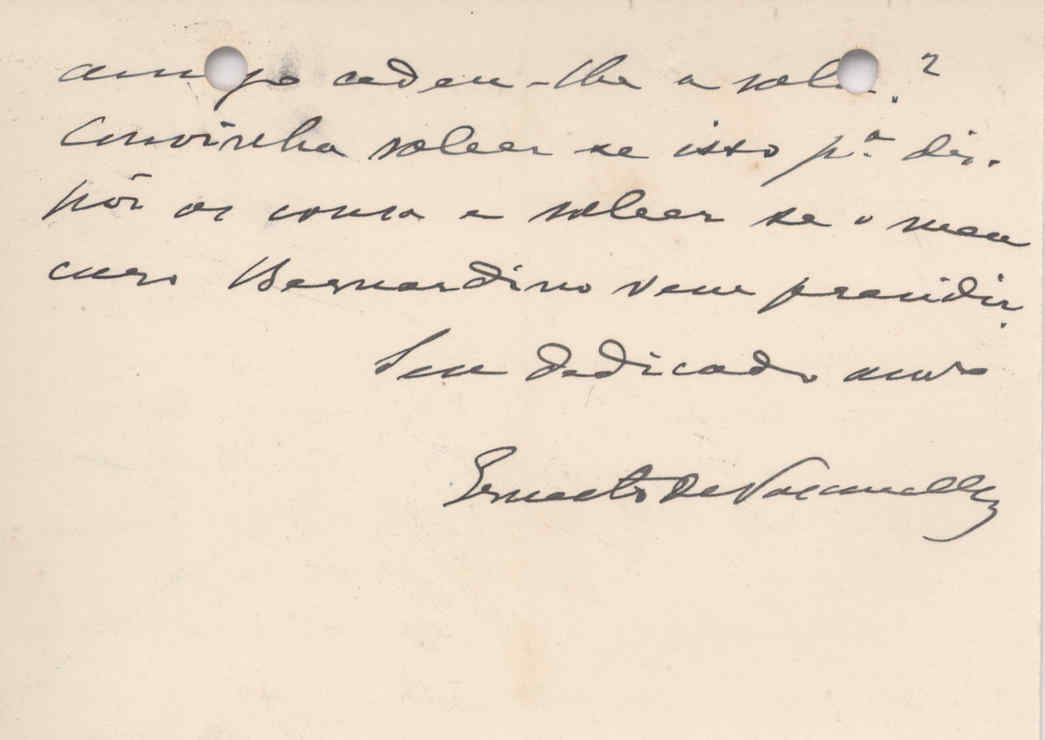 amigo cedeu-lhe a sala?
Convinha saber se isso p.ª dis-
pôr as cousas e saber se o meu
caro Bernardino vem presidir.
Seu dedicado amº
Ernesto de Vasconcellos